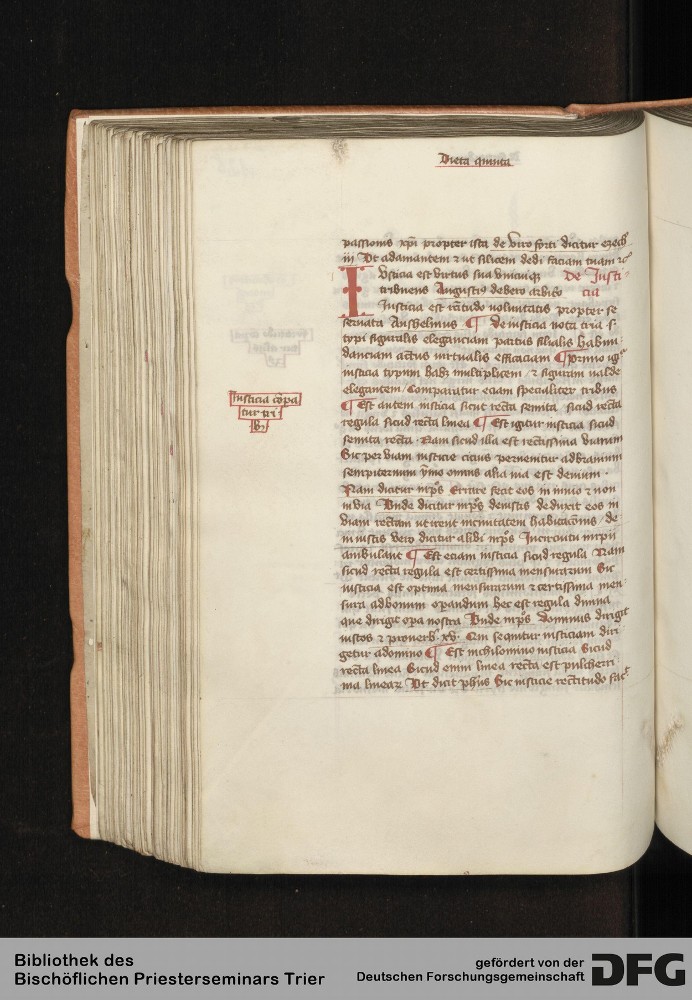 Dieta quinta
passionis xpi propter ista de viro forti dicitur ezech
iij Vt adamantem et ut silicem dedi faciam tuam etc
Iusticia est virtus sua unicuiqз De Justi
tribuens Augustiꝰ de libero arbitrio cia
Iusticia est rectitudo voluntatis propter se
seruata Anshelmus ¶ de iusticia nota tria s.
typi figuralis eleganciam partus filialis habun
danciam actus virtualis efficaciam ¶ primo igr
iusticia typum habz multiplicem et figuram valde
elegantem Comparatur eciam specialiter tribus
¶ Est autem iusticia sicut recta semita sicud recta
regula sicud recta linea ¶ Est igitur iusticia sicud
semita recta Nam sicud illa est rectissima viarum
Sic per viam iusticie cicius peruenitur ad brauium
sempiternum ymo omnis alia via est deuium
Nam dicitur in ps Errare fecit eos in inuio et non
in via Vnde dicitur in ps de iustis deduxit eos in
viam rectam ut irent in ciuitatem habitacionis de
in iustis vero dicitur alibi in ps In circuitu impii
ambulant ¶ Est eciam iusticia sicud regula Nam
sicud recta regula est certissima mensurarum Sic
iusticia est optima mensurarum et certissima men
sura ad bonum operandum hec est regula diuina
que dirigit opa nostra Vnde in ps dominus dirigit
iustos et prouerb xv Qui sequitur iusticiam diri
getur a domino ¶ Est nichilominus iusticia Sicud
recta linea Sicud enim linea recta est pulcherri
ma linearum Vt dicit phus Sic iusticie rectitudo fac
Iusticia compa
tur tri
bz
Bibliothek des
Bischöflichen Priesterseminars Trier
gefördert von der
Deutschen Forschungsgemeinschaft
DFG